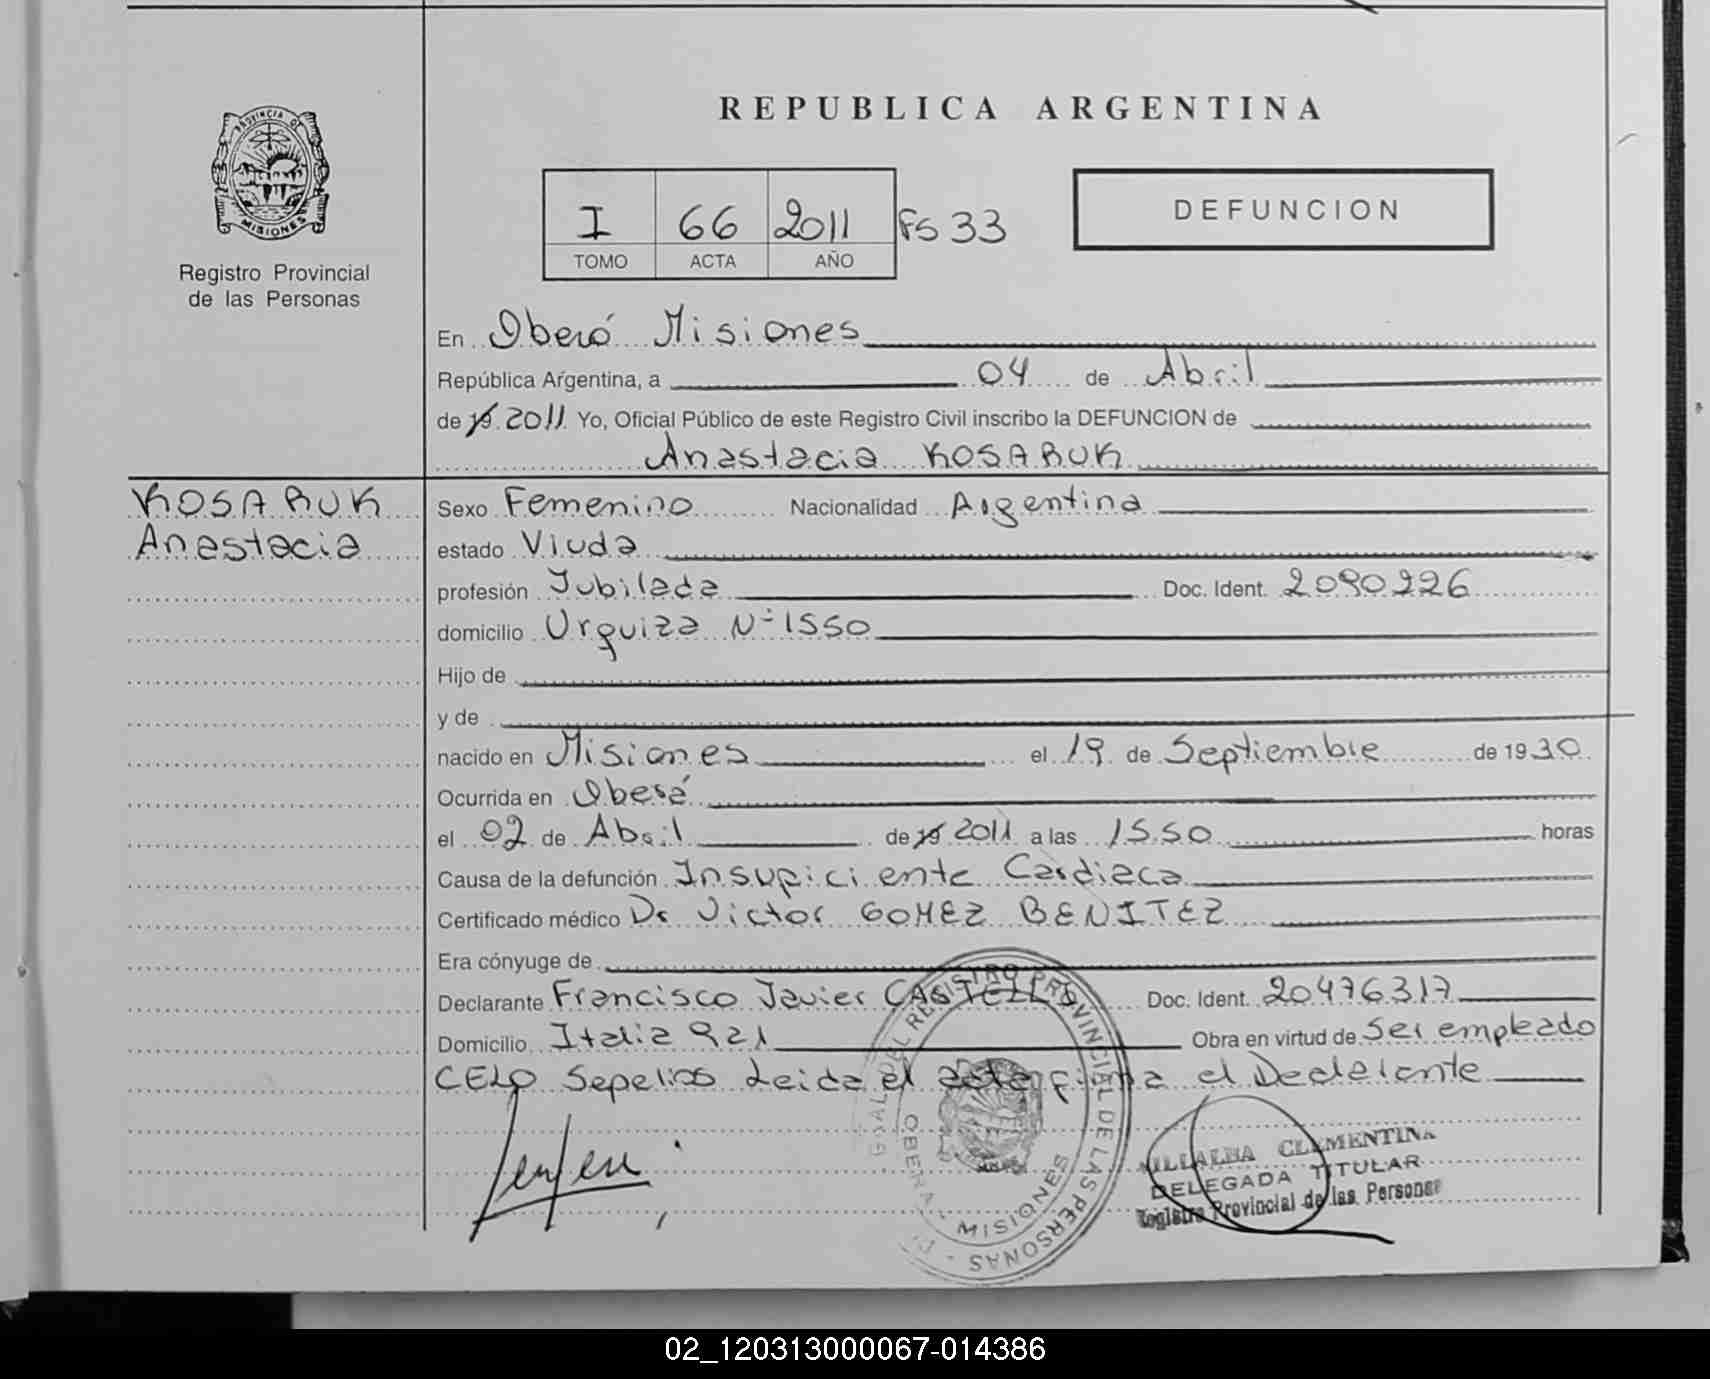 REPUBLICA ARGENTINA
PROVINCIA DE
MISIONES
Registro Provincial
de las Personas
I 66 2011 Fs 33
TOMO ACTA AÑO
DEFUNCION
En Oberá Misiones
República Argentina, a 04 de Abril
de 19 2011 Yo, Oficial Público de este Registro Civil inscribo la DEFUNCION de
Anastacia KOSARUK
KOSARUK
Anastacia
Sexo Femenino Nacionalidad Argentina
estado Viuda
profesión Jubilada Doc. Ident. 2090226
domicilio Urquiza Nº 1550
Hijo de
y de
nacido en Misiones el 19 de Septiembre de 1930
Ocurrida en Oberá
el 02 de Abril de 19 2011 a las 15.50 horas
Causa de la defunción Insuficiente Cardiaca
Certificado médico Dr Victor GOMEZ BENITEZ
Era cónyuge de
Declarante Francisco Javier Doc. Ident. 20476317
Domicilio Italia 921 Obra en virtud de Ser empleado
CELO Sepelios Leida el acta firma el Declarante
REGISTRO PROVINCIAL DE LAS PERSONAS
OBERA - MISIONES
VILLALBA CLEMENTINA
DELEGADA TITULAR
Registro Provincial de las Personas
02_120313000067-014386